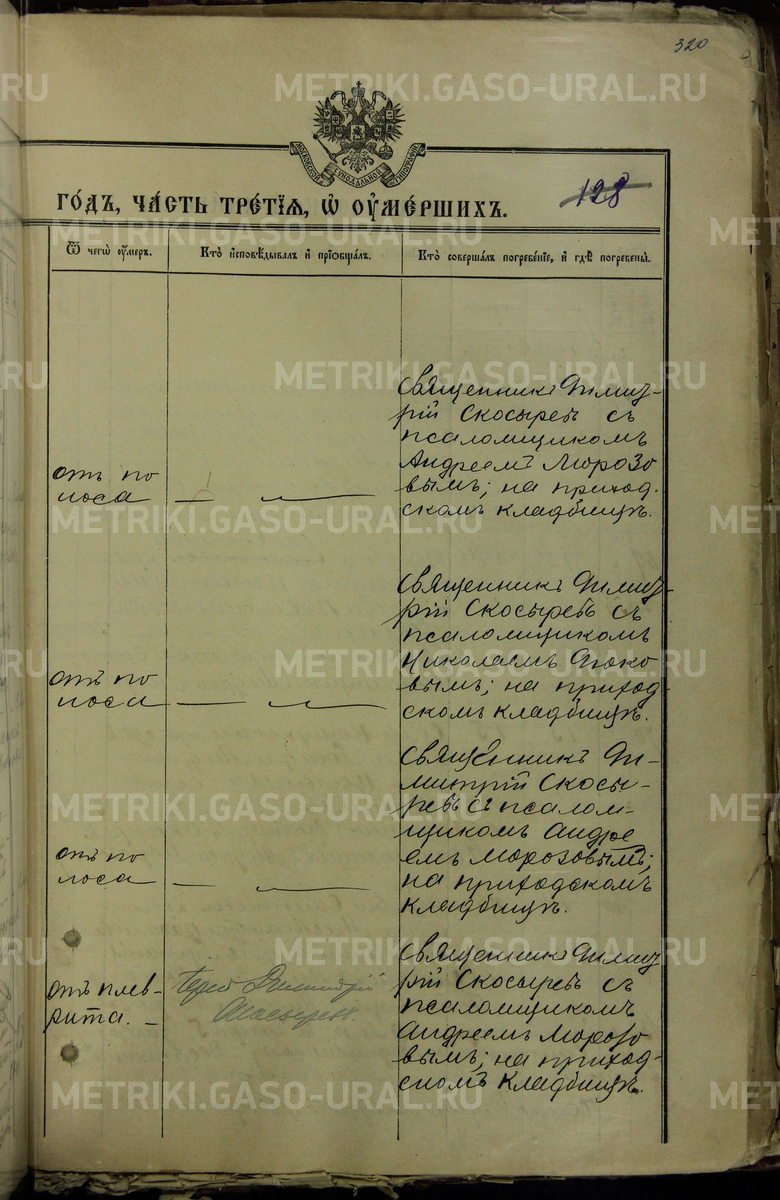 320
МОСКОВСКОЙ СѴНОДАЛЬНОЙ ТИПОГРАФІИ
го́дъ, ча́сть тре́тїѧ, ѡ҆ ᲂу҆ме́ршихъ.
128
Ѿ чегѡ̀ ᲂу҆́меръ.
Кто̀ и҆сповѣ́дывалъ и҆ прїѻбща́лъ.
Кто̀ соверша́лъ погребе́нїе, и҆ гдѣ̀ погребены̀.
отъ по
носа
Священникъ Дмит-
рій Скосыревъ съ
псаломщикомъ
Андреемъ Морозо
вымъ; на приход-
скомъ кладбищѣ.
отъ по
носа
Священникъ Димит-
рій Скосыревъ съ
псаломщикомъ
Николаемъ
вымъ; на приход-
скомъ кладбищѣ.
отъ по
носа
Священникъ Ди-
митрій Скосы-
ревъ съ псалом-
щикомъ Андре
емъ Морозовымъ;
на приходскомъ
кладбищѣ.
отъ плев-
рита.
Іерей Димитрій
Скосыревъ
Священникъ Димит-
рій Скосыревъ съ
псаломщикомъ
Андреемъ Морозо
вымъ; на приход-
скомъ кладбищѣ.
METRIKI.GASO-URAL.RU